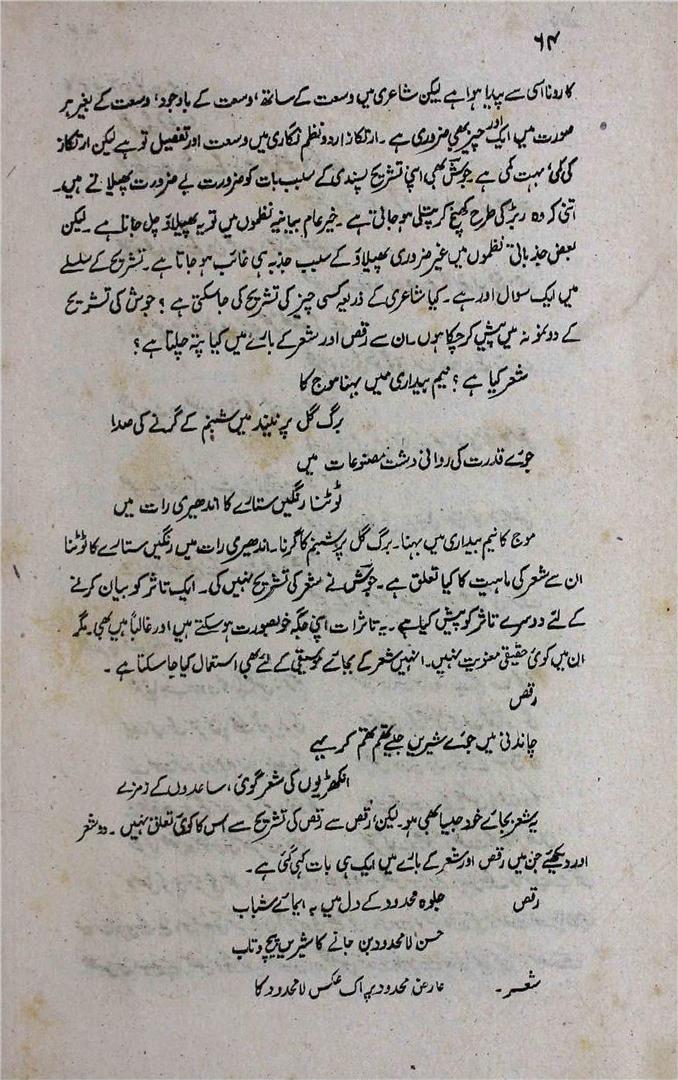 ۶۴
کا رونا اسی سے پیدا ہوا ہے لیکن شاعری میں وسعت کے ساتھ، وسعت کے باوجود، وسعت کے بغیر ہر
صورت میں ایک اور چیز بھی ضروری ہے۔ ارتکاز اردو نظم نگاری میں وسعت اور تفصیل تو ہے لیکن ارتکاز
کی کمی، بہت کمی ہے جوشؔ بھی اپنی تشریح پسندی کے سبب بات کو ضرورت بے ضرورت پھیلاتے ہیں۔
اتنی کہ وہ ربڑ کی طرح کھنچ کر پتلی ہو جاتی ہے۔ خیر عام بیانیہ نظموں میں تو یہ پھیلاؤ چل جاتا ہے۔ لیکن
بعض جذباتی نظموں میں غیر ضروری پھیلاؤ کے سبب جذبہ ہی غائب ہو جاتا ہے۔ تشریح کے سلسلے
میں ایک سوال اور ہے۔ کیا شاعری کے ذریعہ کسی چیز کی تشریح کی جا سکتی ہے؟ جوش کی تشریح
کے دو نمونہ میں پیش کر چکا ہوں۔ ان سے رقص اور شعر کے بارے میں کیا پتہ چلتا ہے؟
شعر کیا ہے؟ نیم بیداری میں بہنا موج کا
برگ گل پر نیند میں شبنم کے گرنے کی صدا
جوئے قدرت کی روانی دشت مصنوعات میں
ٹوٹنا رنگیں ستارے کا اندھیری رات میں
موج کا نیم بیداری میں بہنا۔ برگ گل پر شبنم کا گرنا۔ اندھیری رات میں رنگیں ستارے کا ٹوٹنا
ان سے شعر کی ماہیت کا کیا تعلق ہے۔ جوشؔ نے شعر کی تشریح نہیں کی۔ ایک تاثر کو بیان کرنے
کے لئے دوسرے تاثر کو پیش کیا ہے۔ یہ تاثرات اپنی جگہ خوبصورت ہو سکتے ہیں اور غالباً ہیں بھی۔ مگر
ان میں کوئی حقیقی معنویت نہیں۔ انہیں شعر کے بجائے موسیقی کے لئے بھی استعمال کیا جا سکتا ہے۔
رقص
چاندنی میں جوئے شیریں جیسے تھم تھم کر بہے
انکھڑیوں کی شعر گوئی، ساعدوں کے زمزمے
یہ شعر بجائے خود جیسا بھی ہو۔ لیکن رقص سے رقص کی تشریح سے اس کا کوئی تعلق نہیں۔ دو شعر
اور دیکھئے جن میں رقص اور شعر کے بارے میں ایک ہی بات کہی گئی ہے۔
رقص جلوہ محدود کے دل میں بہ ایمائے شباب
حسن لا محدود بن جانے کا شیریں پیچ و تاب
شعر۔ عارض محدود پر اک عکس لا محدود کا